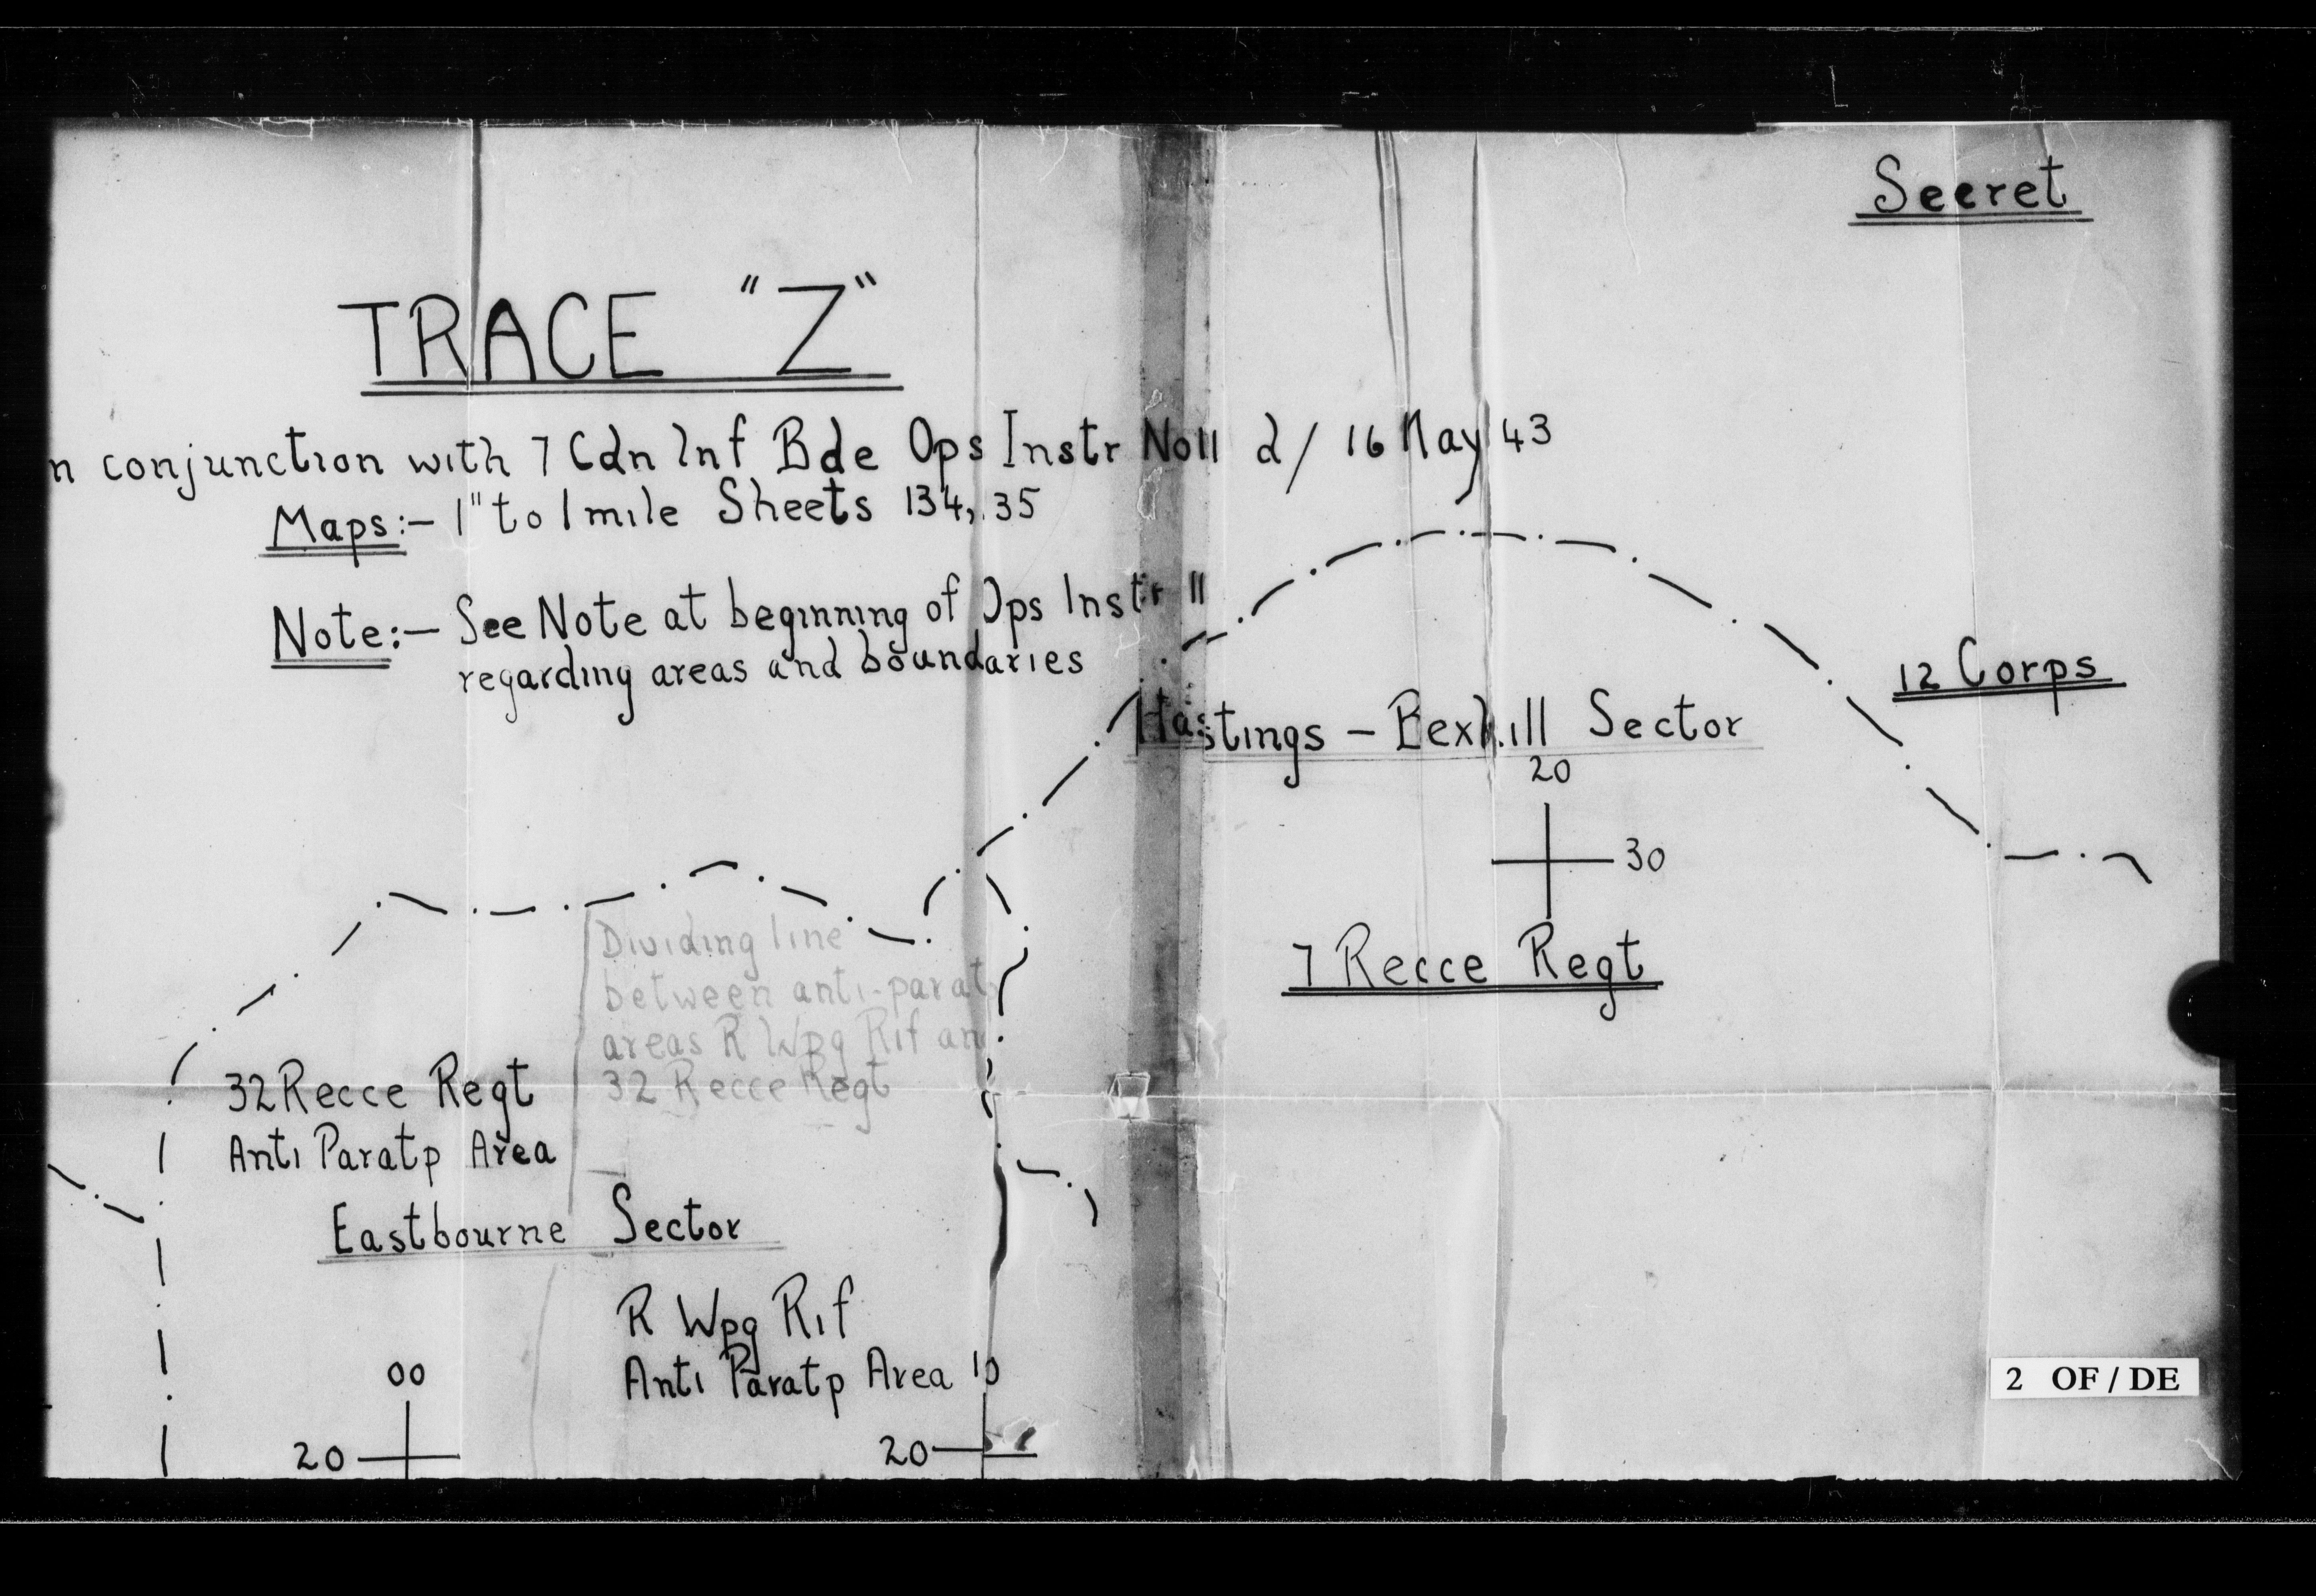 Secret
TRACE "Z"
n conjunction with 7 Cdn Inf Bde Ops Instr No 11 d/ 16 May 43
Maps:- 1" to 1 mile Sheets 134, 35
Note:- See Note at beginning of Ops Instr 11
regarding areas and boundaries
12 Corps
Hastings - Bexhill Sector
20
30
7 Recce Regt
Dividing line
between anti-parat
areas R Wpg Rif an
32 Recce Regt
32 Recce Regt
Anti Paratp Area
Eastbourne Sector
R Wpg Rif
Anti Paratp Area
00
10
20
20
2 OF/DE